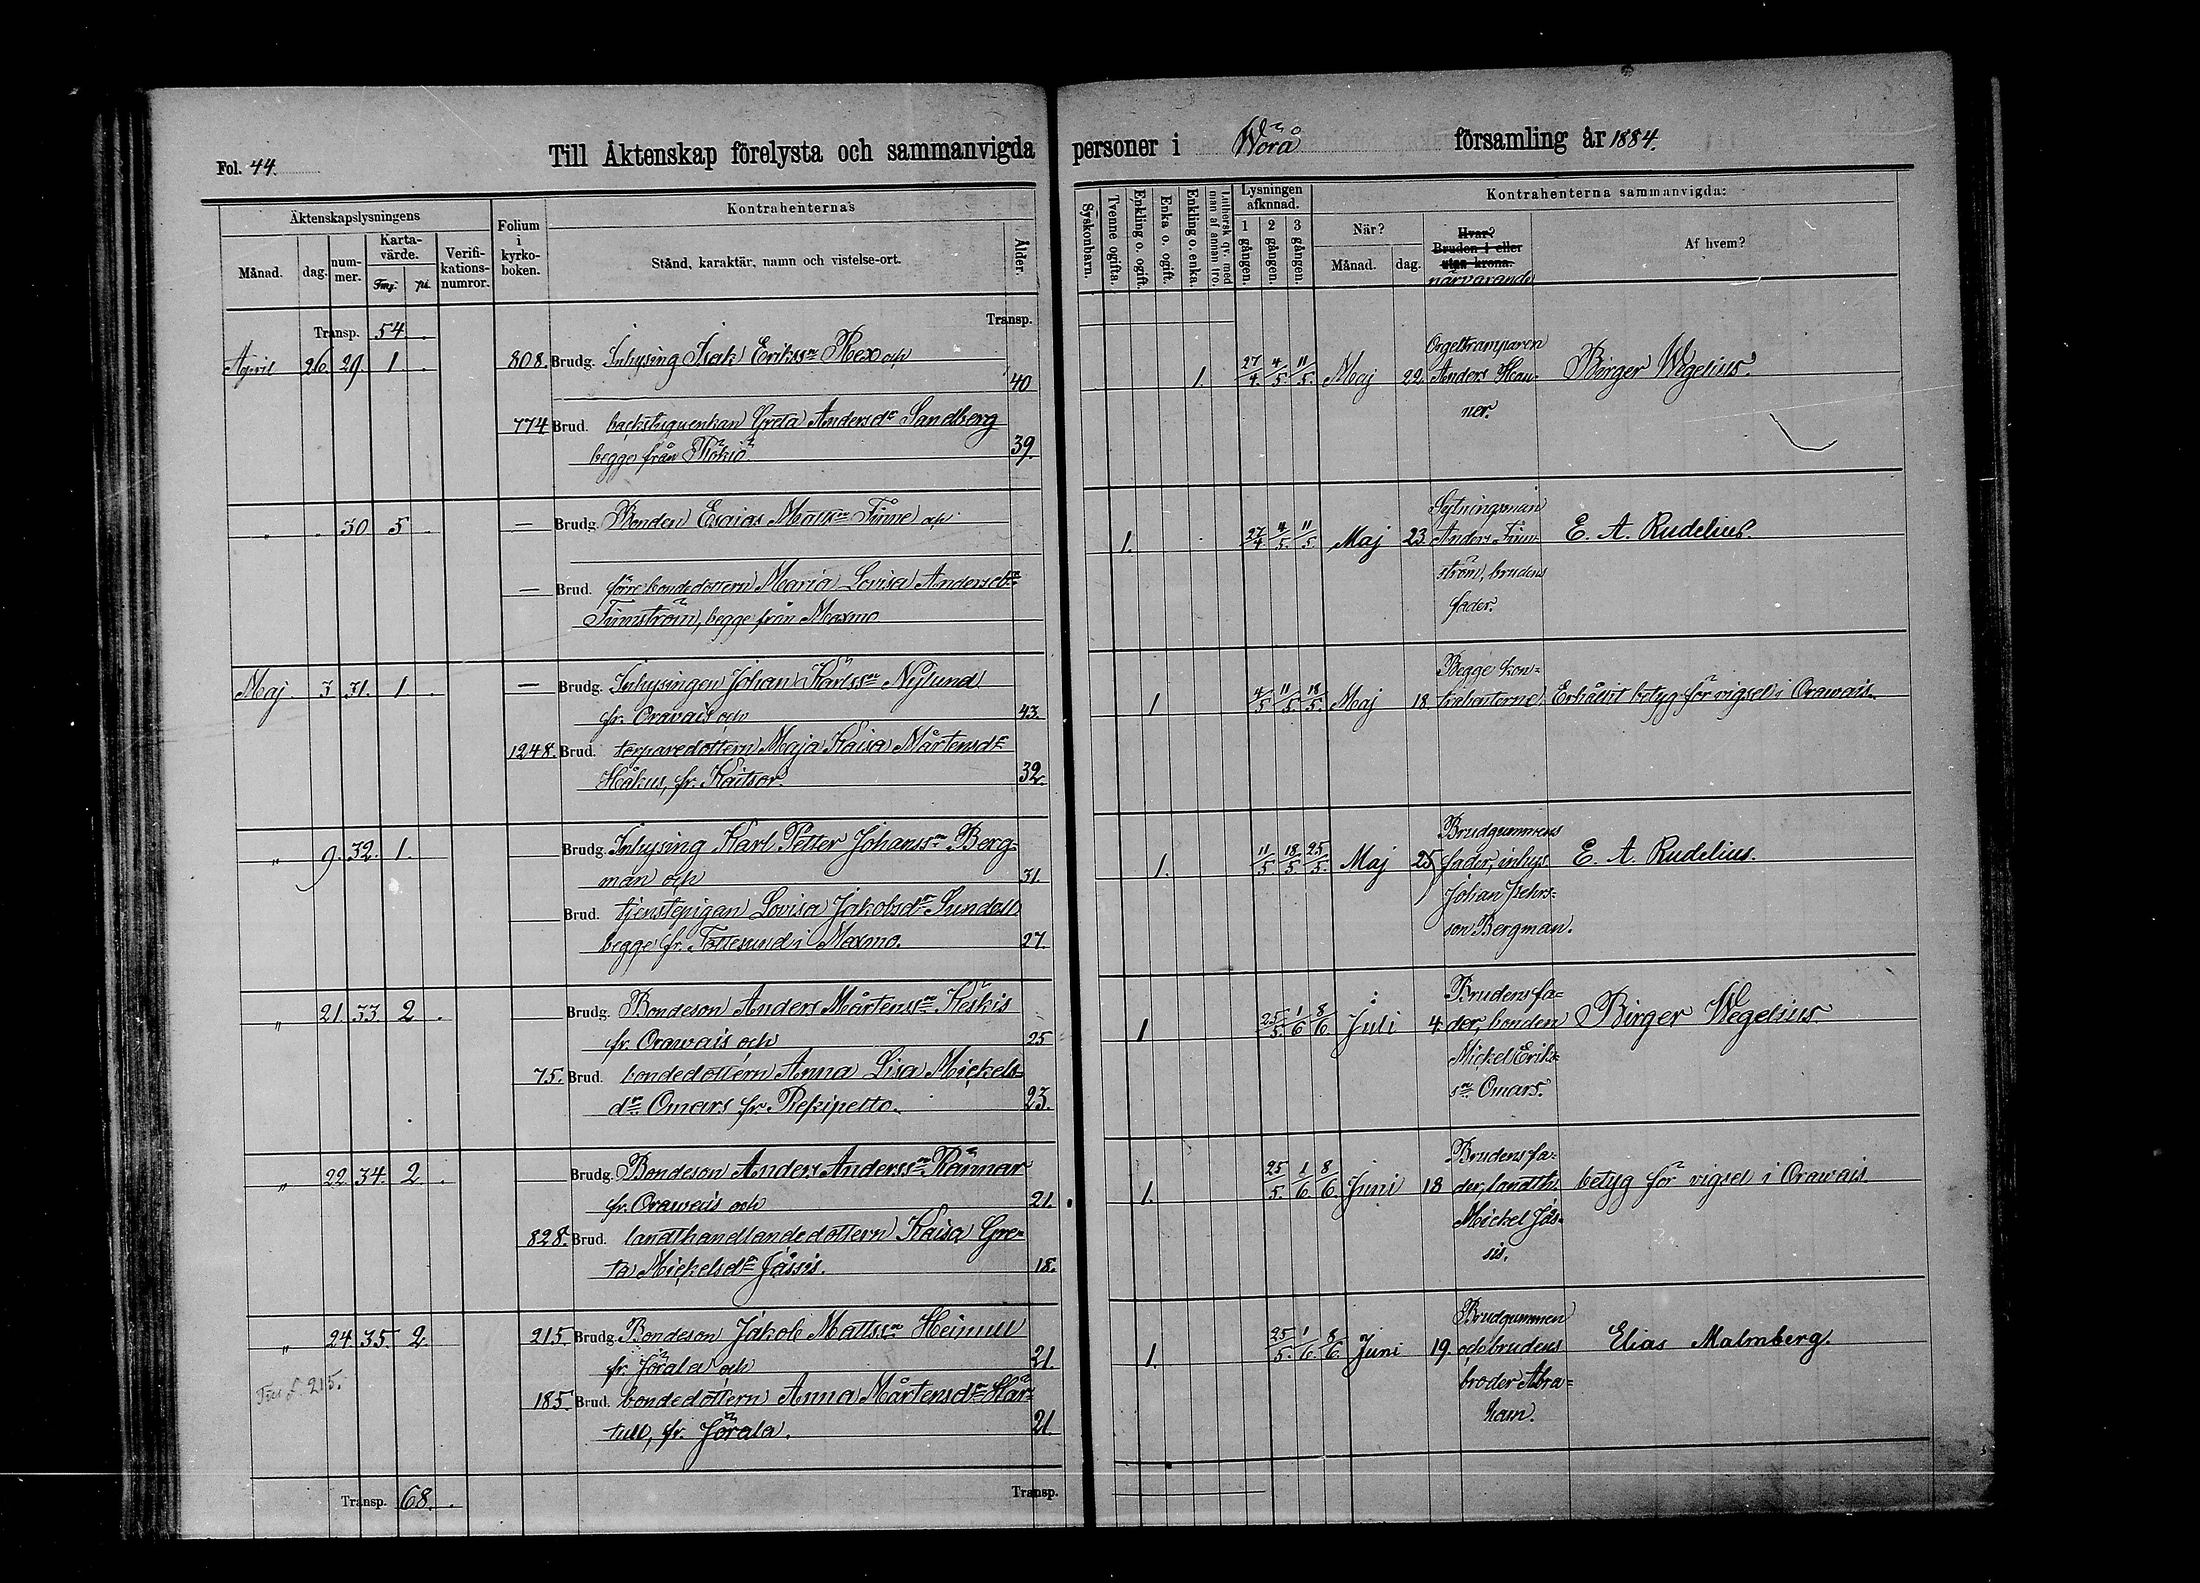 Fol. 44.
Till Äktenskap förelysta och sammanvigda personer i Wörå församling år 1884.
Äktenskapslysningens
Månad. dag. nummer. Kartavärde. Fmg: pi. Verifikationsnumror.
Folium i kyrkoboken.
Kontrahenternas
Stånd, karaktär, namn och vistelse-ort.
Ålder.
Syskonbarn.
Tvenne ogifta.
Enkling o. ogift.
Enka o. ogift.
Enkling o. enka.
Luthersk qv. med man af annan tro.
Lysningen afknnad.
1 gången. 2 gången. 3 gången.
Kontrahenterna sammanvigda:
När?
Månad. dag.
Hvar?
Bruden i eller
utan krona.
närvarande
Af hvem?
Transp. 54 .
Transp.
April 26. 29. 1 . 808. Brudg. Inhysing Isak Erikssn Rex och
40
774 Brud. backstuguenkan Greta Andersdr Sandberg
begge från Rökiö 39.
1. 27/4 4/5 11/5. Maj 22.
Orgeltramparen
Anders Hannner.
Birger Wegelius.
" . 30 5 . — Brudg. Bonden Esaias Mattssn Finne och
— Brud. förre bondedottern Maria Lovisa Andersdr
Finnström, begge från Maxmo
1. 27/4 4/5. 11/5. Maj 23.
Sytningsman
Anders Finnström, brudens
fader.
E. A. Rudelius.
Maj. 3 31. 1 . — Brudg. Inhysingen Johan Karlssn Nylund
fr. Oravais och 43.
1248. Brud. torparedottern Maja Kaisa Mårtensdr
Håkus, fr. Kaitsor. 32.
1 4/5 11/5 18/5. Maj 18
Begge kontrahenterne
Erhållit betyg för vigsel i Orawais.
" 9. 32. 1. Brudg. Inhysing Karl Petter Johanssn Bergman och 31.
Brud. tjenstepigan Lovisa Jakobsdr Sundell
begge fr. Tottesund i Maxmo. 27.
1. 11/5 18/5 25/5. Maj 25
Brudgummens
fader, inhys
Johan Pehrsson Bergman.
E. A. Rudelius.
" 21. 33. 2 . Brudg. Bondeson Anders Mårtenssn Keskis
fr. Orawais och 25
75. Brud. bondedottern Anna Lisa Mickelsdr Omars fr. Rekipelto. 23.
1 25/5. 1/6 8/6. Juli 4.
Brudens fader, bonden
Mickel Erikssn Omars.
Birger Wegelius
" 22 34. 2 . Brudg. Bondeson Anders Anderssn Rännar
fr. Orawais och 21.
828. Brud. landthandlandedottern Kaisa Greta Mickelsdr Jåssis. 18.
1. 25/5. 1/6 8/6 Juni 18
Brudens fader, landth.
Mickel Jåssis.
betyg för vigsel i Orawais.
" 24. 35. 2. 215. Brudg. Bondeson Jakob Mattssn Heinull
fr. Jörala och 21.
185. Brud. bondedottern Anna Mårtensdr Härtull, fr. Jörala. 21
1. 25/5. 1/6. 8/6. Juni 19.
Brudgummen
och brudens
broder Abraham.
Elias Malmberg.
f. 215.
Transp. 68. .
Transp.